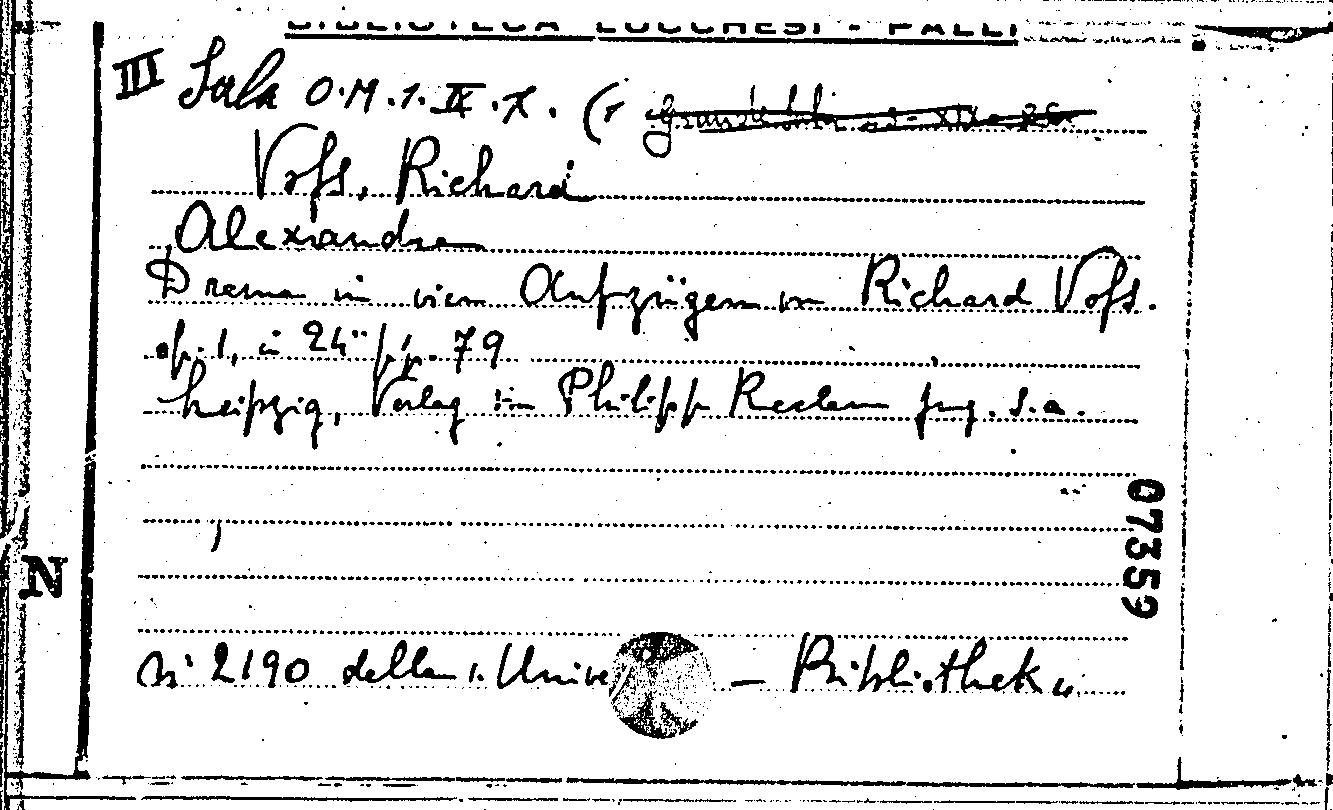 BIBLIOTECA LUCCHESI - PALLI
III Sala O.M.1.IX.X. (
Voſs, Richard
Alexandra
Drama in vier Aufzügen von Richard Voſs.
op. 1, in 24° pp. 79
Leipzig, Verlag von Philipp Reclam jung. s.a.
07359
N
N° 2190 della "Unive — Bibliothek"